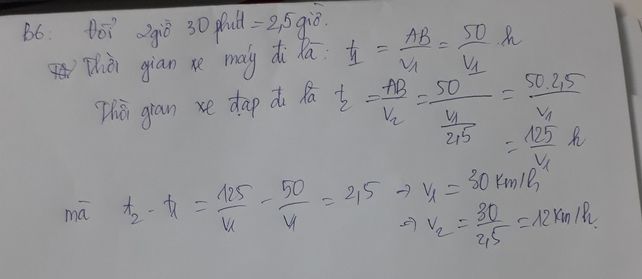 B6: Đổi 2giờ 30 phút = 2,5 giờ.
Thời gian xe máy đi là: t1 = AB/V1 = 50/V1 h
Thời gian xe đạp đi là t2 = AB/V2 = 50/(V1/2,5) = 50.2,5/V1
= 125/V1 h
mà t2 - t1 = 125/V1 - 50/V1 = 2,5 → V1 = 30 km/h
→ V2 = 30/2,5 = 12 km/h.